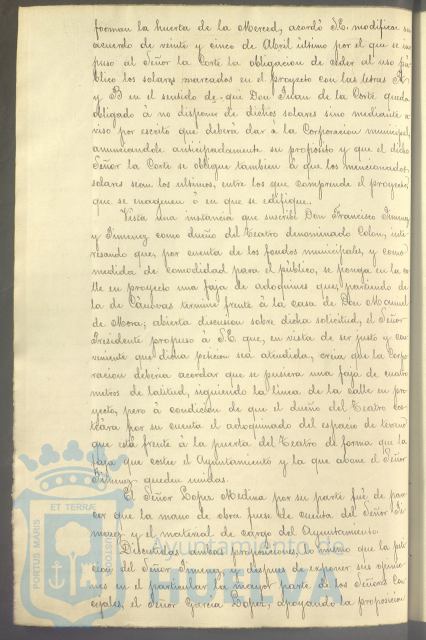 forman la huerta de la Merced, acordó S.E. modificar su
acuerdo de veinte y cinco de Abril último por el que se im
puso al Señor la Corte la obligacion de ceder al uso pú
blico los solares marcados en el proyecto con las letras A
y B en el sentido de que Don Juan de la Corte queda
obligado á no disponer de dichos solares sino mediante a
viso por escrito que deberá dar á la Corporacion municipal,
anunciandole anticipadamente su propósito y que el dicho
Señor la Corte se obligue tambien á que los mencionados
solares sean los últimos, entre los que comprende el proyecto,
que se enagenen ó en que se edifique.
Vista una instancia que suscribe Don Francisco Jimenez
y Jimenez como dueño del Teatro denominado Colon, inte
resando que, por cuenta de los fondos municipales, y como
medida de comodidad para el público, se ponga en la ca
lle en proyecto una faja de adoquines que, partiendo de
la de Cánovas termine frente á la casa de Don Manuel
de Mora; abierta discusion sobre dicha solicitud, el Señor
Presidente propuso á S.E. que, en vista de ser justo y con
viniente que dicha peticion sea atendida, creia que la Corpo
racion deberia acordar que se pusiera una faja de cuatro
metros de latitud, siguiendo la linea de la calle en pro
yecto, pero á condicion de que el dueño del Teatro cos
teára por su cuenta el adoquinado del espacio de terreno
que está frente á la puerta del Teatro de forma que la
faja que costee el Ayuntamiento y la que abone el Señor
Jimenez queden unidas.
El Señor Lopez Medina por su parte fué de pare
cer que la mano de obra fuese de cuenta del Señor Ji
menez y el material de cargo del Ayuntamiento.
Discutidas ambas proposiciones, lo mismo que la peti
cion del Señor Jimenez y despues de exponer sus opinio
nes en el particular la mayor parte de los Señores Con
cejales, el Señor Garcia Lopez, apoyando la proposicion
PORTUS MARIS ET TERRAE
Ayuntamiento de
HUELVA